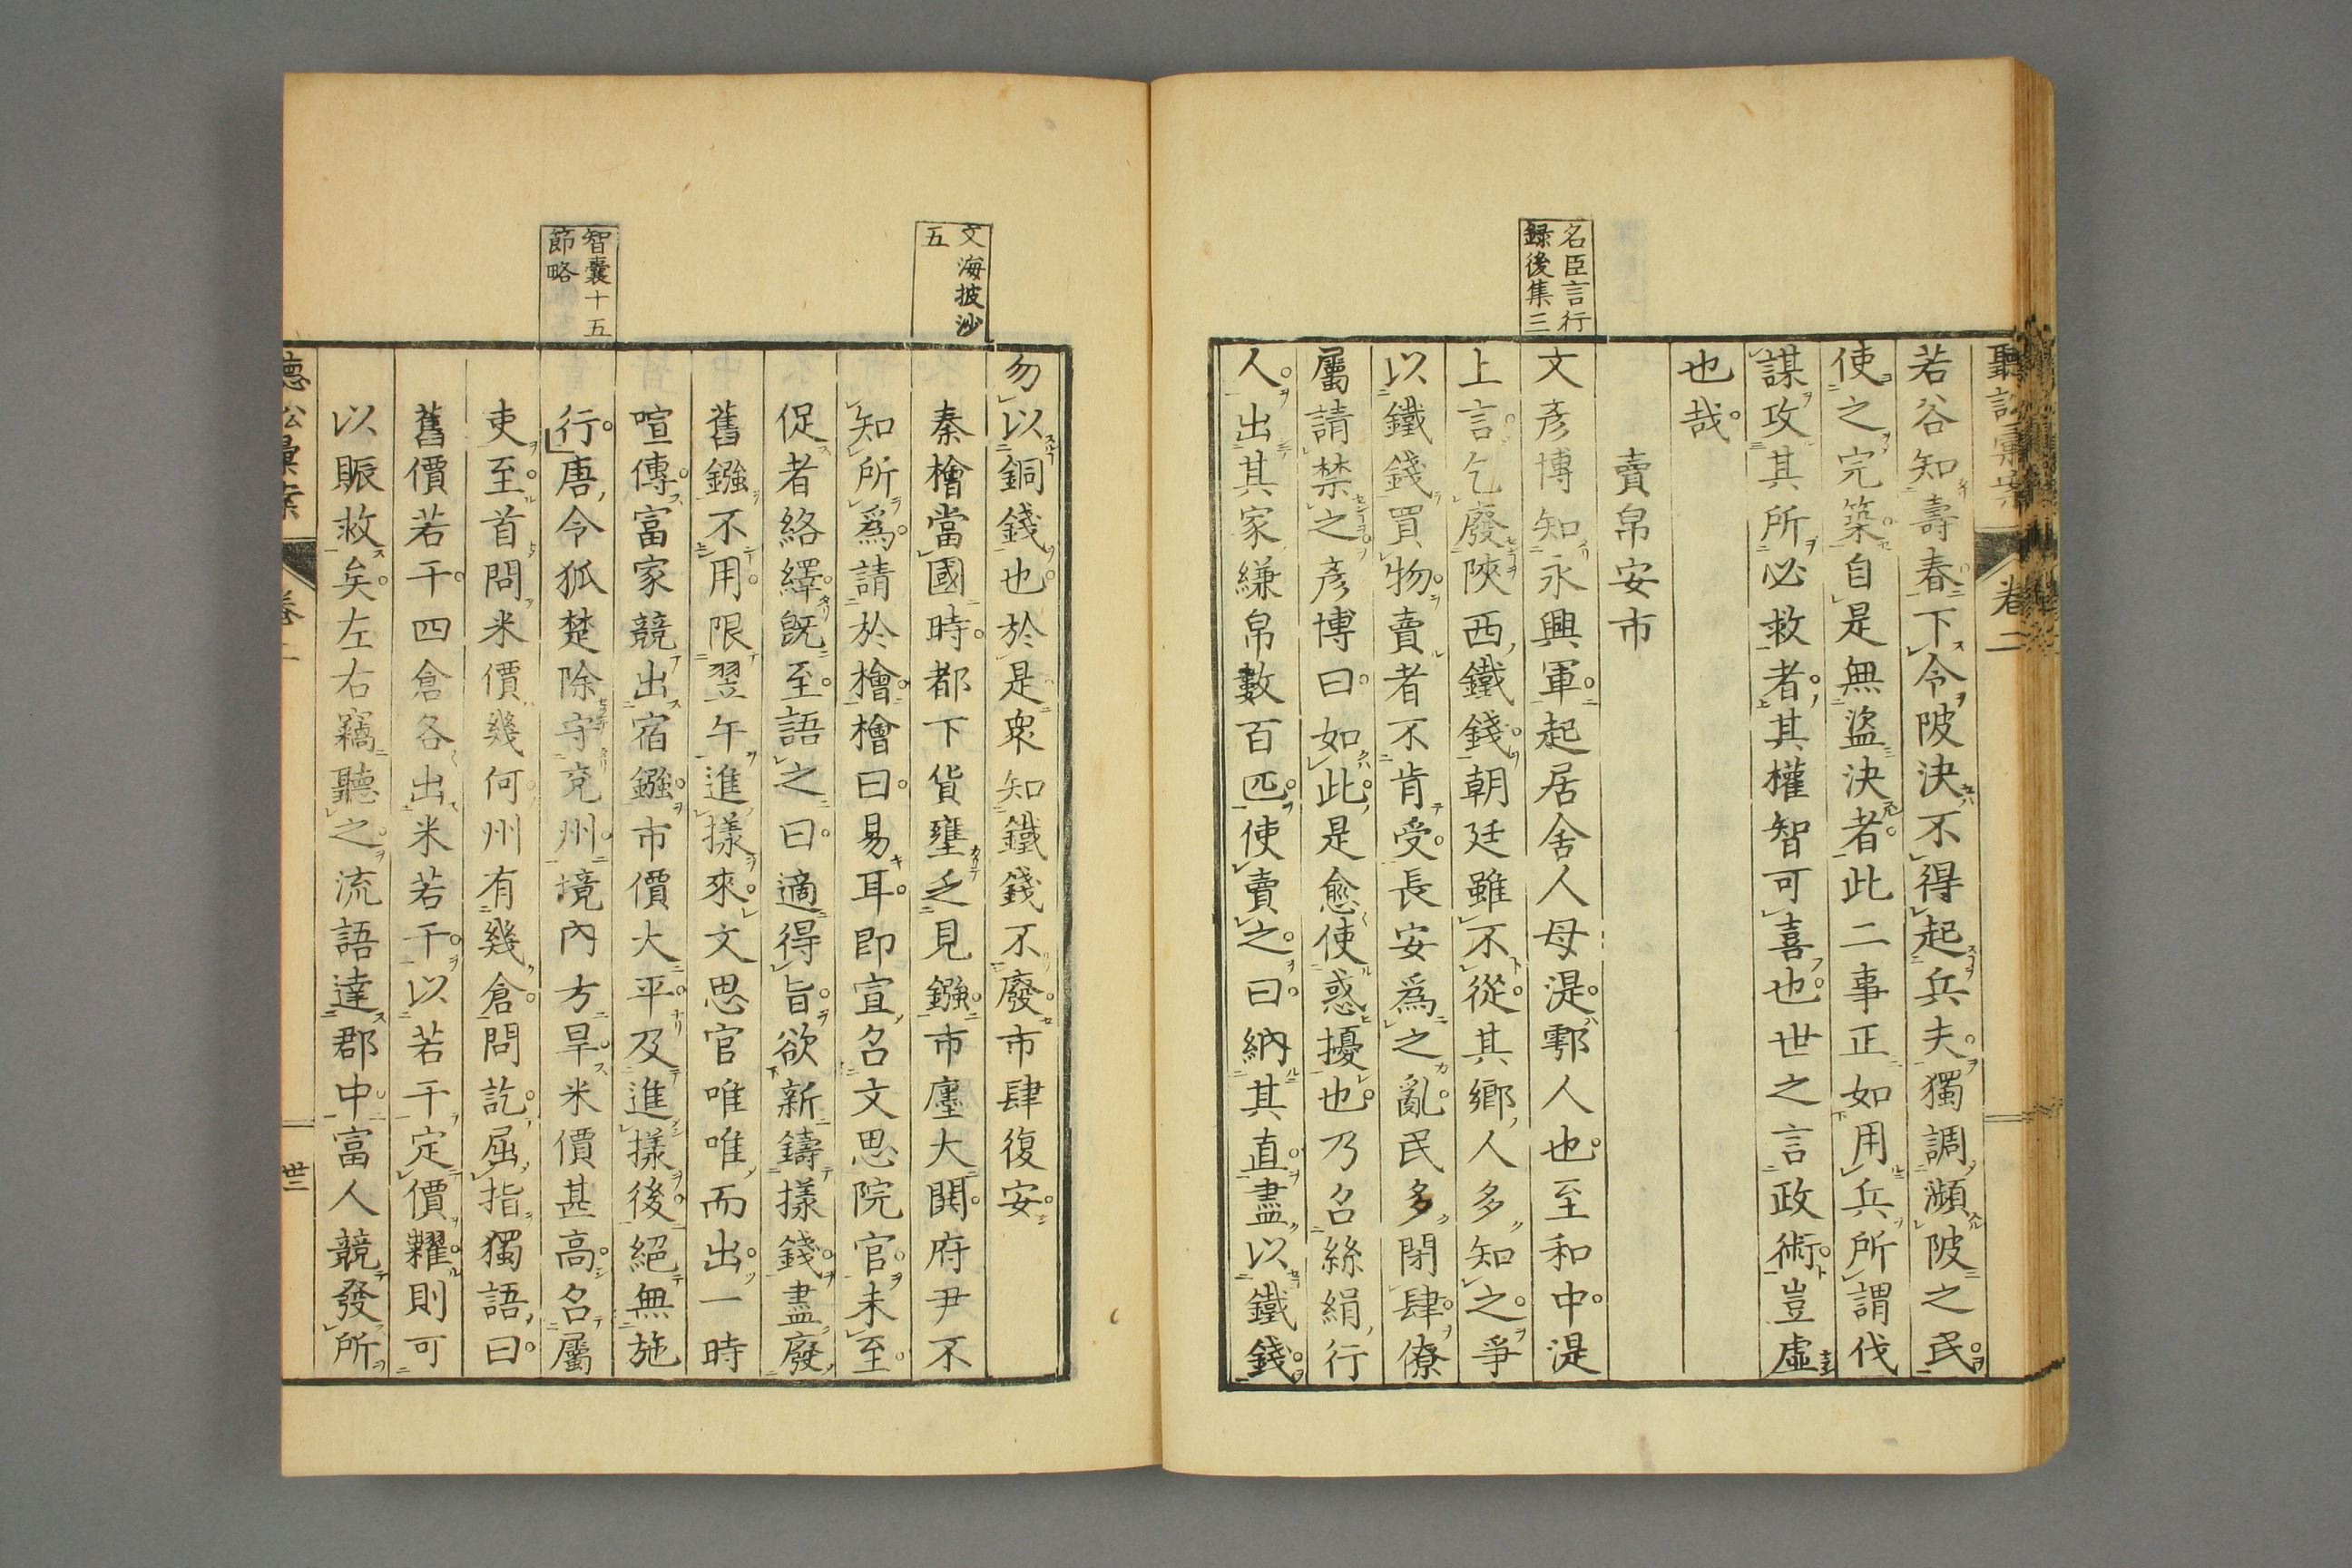 聽訟彙案
卷二
若谷知壽春下令陂決不得起兵夫獨調瀕陂之民
使之完築自是無盜決者此二事正如用兵所謂伐
謀攻其所必救者其權智可喜也世之言政術豈虛
也哉
賣帛安市
名臣言行
録後集三
文彥博知永興軍起居舍人母湜鄠人也至和中湜
上言乞廢陝西鐵錢朝廷雖不從其鄉人多知之爭
以鐵錢買物賣者不肯受長安爲之亂民多閉肆僚
屬請禁之彥博曰如此是愈使惑擾也乃召絲絹行
人出其家縑帛數百匹使賣之曰納其直盡以鐵錢
勿以銅錢也於是衆知鐵錢不廢市肆復安
文海披沙
五
秦檜當國時都下貨壅乏見鏹市廛大閧府尹不
知所爲請於檜檜曰易耳即宣召文思院官未至
促者絡繹旣至語之曰適得旨欲新鑄樣錢盡廢
舊鏹不用限翌午進樣來文思官唯唯而出一時
喧傳富家競出宿鏹市價大平及進樣後絕無施
智囊十五
節略
行唐令狐楚除守兗州境內方旱米價甚高召屬
吏至首問米價幾何州有幾倉問訖屈指獨語曰
舊價若干四倉各出米若干以若干定價糶則可
以賑救矣左右竊聽之流語達郡中富人競發所
卷二
丗三